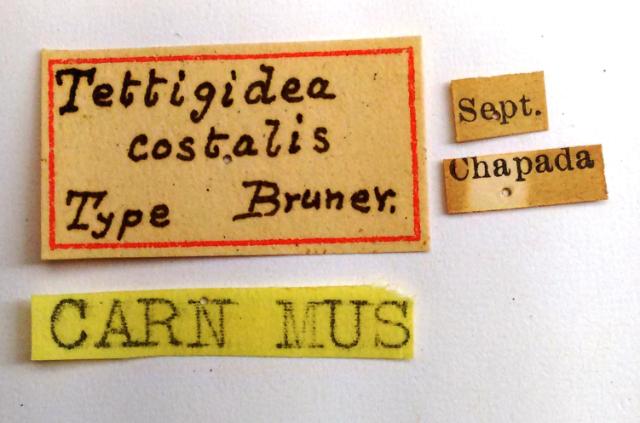 Tettigidea
costalis
Type Bruner.
Sept.
Chapada
CARN MUS